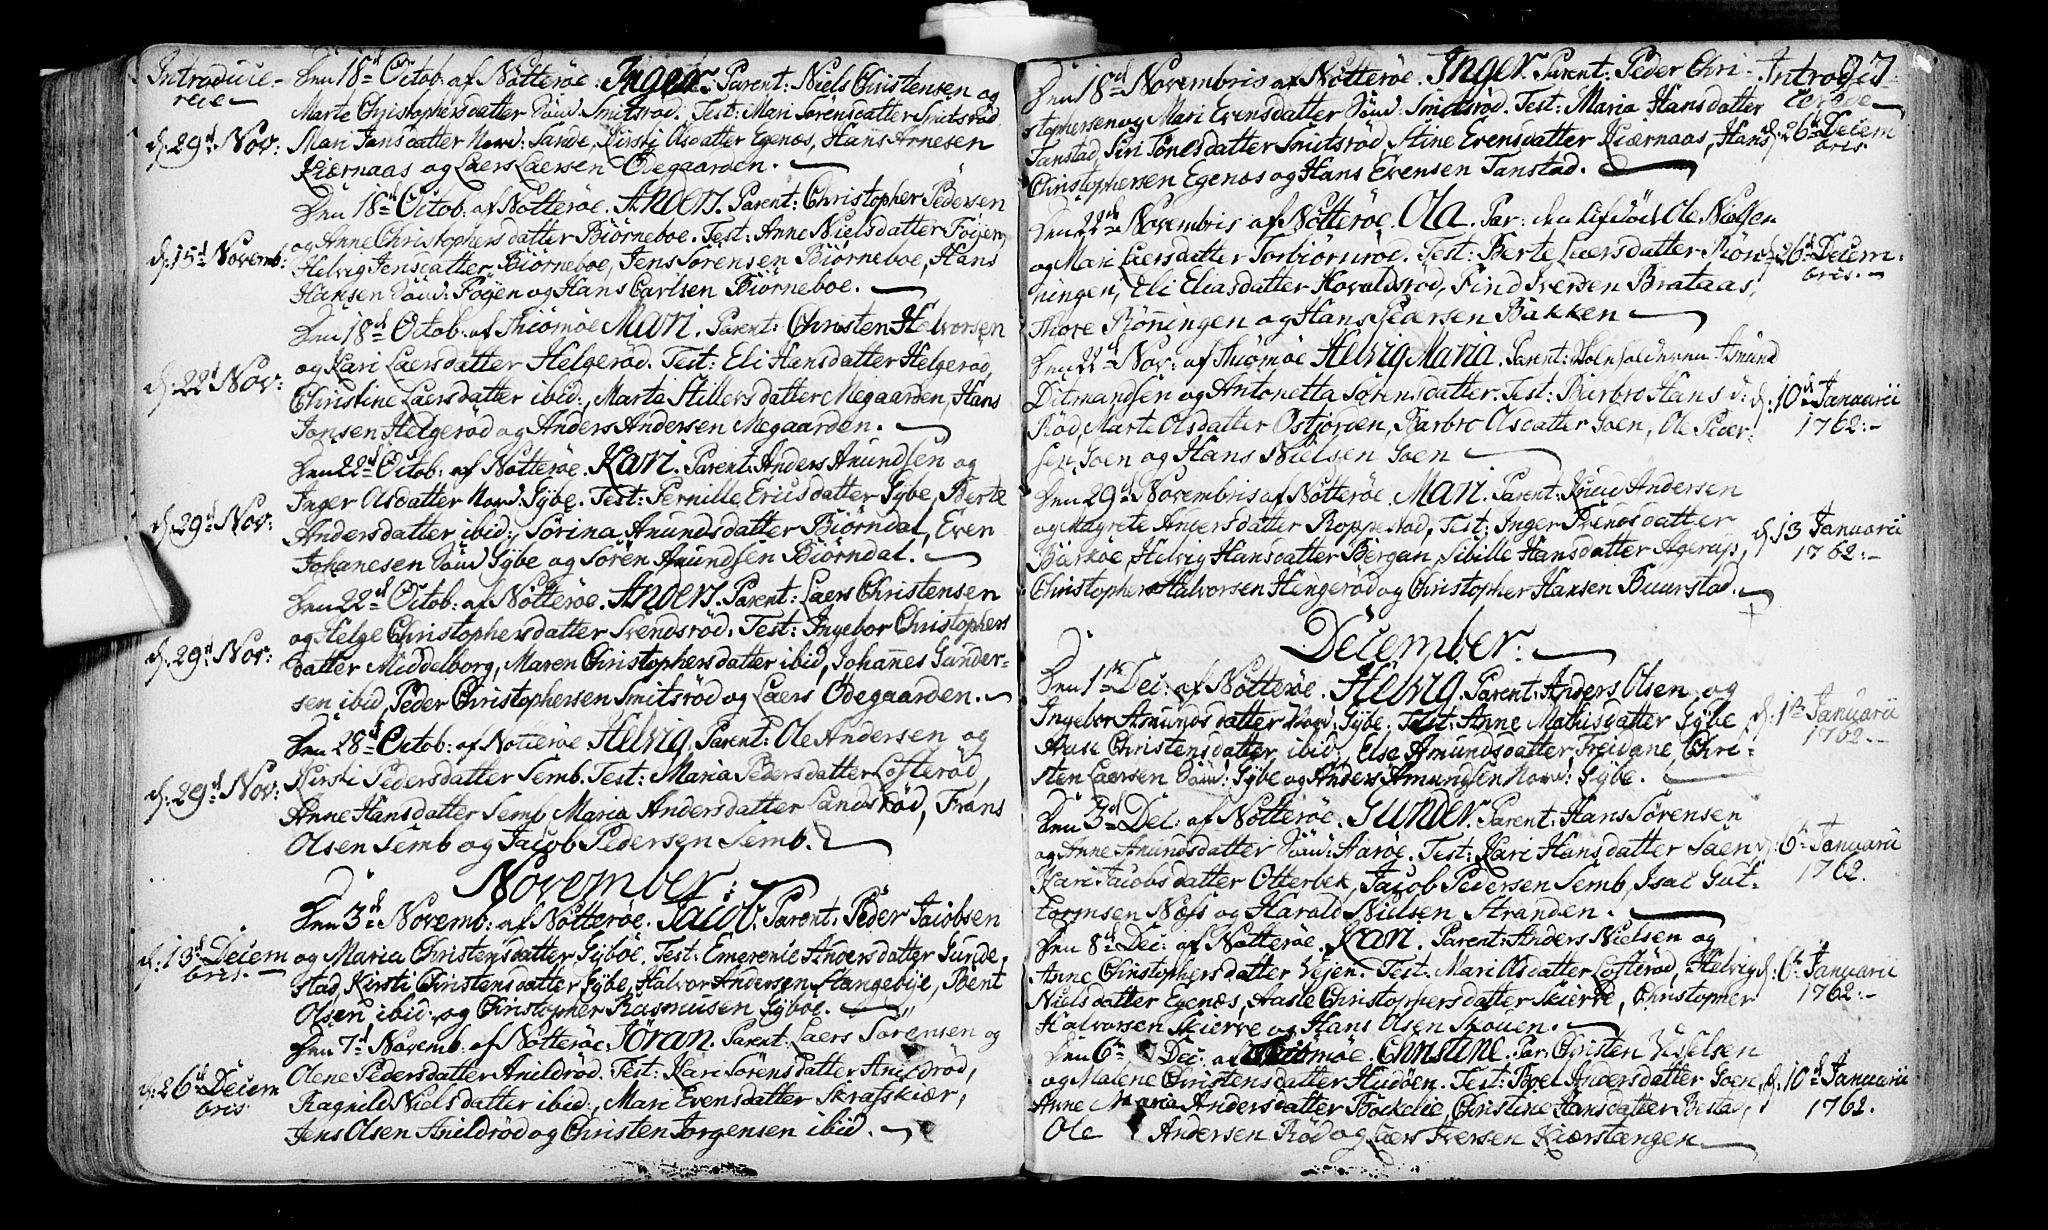 Introduce-
rede
Den 18d Octob: af Nötteröe. Inger. Parent: Niels Christensen og
Marte Christophersdatter Smitsröd. Test: Mari Sörensdatter Smitsröd
d: 29d Nov:
Mari Jansdatter Nord: Sande, Kirsti Olsdatter Egenæs, Hans Arnesen
Kiærnaas og Laers Laersen Ödegaarden.
Den 18d Octob: af Nötteröe. Anders. Parent: Christopher Pedersen
og Anne Christophersdatter Biörneboe. Test: Anne Nielsdatter Föyen,
d: 15d Novemb:
Helvig Jensdatter Biörneboe, Jens Sörensen Biörneboe, Hans
Hansen Föyen og Hans Carlsen Biörneboe.
Den 18d Octob: af Thiömöe Mari. Parent: Christen Halvorsen
og Kari Laersdatter Helgeröd. Test: Eli Hansdatter Helgeröd,
d: 22d Nov:
Christine Laersdatter ibid:, Marte Stillersdatter Megaarden, Hans
Jonsen Helgeröd og Anders Andersen Megaarden.
Den 22d Octob: af Nötteröe. Kari. Parent: Anders Amundsen og
Inger Olsdatter Nord: Gybe. Test: Pernille Ericsdatter Gybe, Berte
d: 29d Nov:
Andersdatter ibid:, Sörina Amundsdatter Biörndal, Even
Johanesen Gybe og Sören Amundsen Biörndal.
Den 22d Octob: af Nötteröe. Anders. Parent: Laers Christensen
og Helge Christophersdatter Svendsröd. Test: Ingebor Christophers
d: 29d Nov:
datter Middelborg, Maren Christophersdatter ibid, Johannes Gunder-
sen ibid, Peder Christophersen Smitsröd og Laers Ödegaarden.
Den 28d Octob: af Nötteröe Helvig. Parent: Ole Andersen og
Kirsti Pedersdatter Semb. Test: Maria Pedersdatter Lofteröd,
d: 29d Nov:
Anne Hansdatter Semb, Maria Andersdatter Sandsröd, Frans
Olsen Semb og Jacob Pedersen Semb.
November.
Den 3d Novemb: af Nötteröe. Jacob. Parent: Peder Jacobsen
d: 13d Decem
bris.
og Maria Christensdatter Gyböe. Test: Emerenie Andersdatter Gunde-
stad, Kirsti Christensdatter Gybe, Halvor Andersen Stangebye, Bent
Olsen ibid: og Christopher Rasmusen Gyböe.
Den 7d Novemb: af Nötteröe Jöran. Parent: Laers Sörensen og
Olene Pedersdatter Anildröd. Test: Kari Sörensdatter Anildröd,
d: 26d Decem
bris
Ragnild Nielsdatter ibid:, Mari Evensdatter Skrafskiær,
Jens Olsen Anildröd og Christen Jorgensen ibid.
Introd
cerede
Den 18d Novembris af Nötteröe. Inger. Parent: Peder Chri-
stophersen og Mari Evensdatter Smitsröd. Test: Maria Hansdatter
Tanstad, Siri Tönesdatter Smitsröd, Stine Evensdatter Kiærnaas, Hans
d: 26d Decem
bris
Christophersen Egenæs og Hans Evensen Tanstad.
Den 22d Novembris af Nötteröe. Ola. Par: den Ole Nielsen
og Mari Laersdatter Torbiörnröd. Test: Berte Laersdatter Rön-
d: 26d Decem-
bris.
ningen, Eli Eliasdatter Havaldsröd, Find Iversen Brataas,
Thore Rönningen og Hans Pedersen Bakken
Den 22d Nov: af Thiömöe Helvig Maria. Parent: Amund
Ditmandsen og Antonetta Sörensdatter. Test: Barbro Hansd:
d: 10d Januarii
1762.
Röd, Marte Olsdatter Ostjorden, Barbro Olsdatter Goen, Ole Peder-
sen Goen og Hans Nielsen Goen
Den 29d Novembris af Nötteröe. Mari. Parent: Knud Andersen
og Magrete Andersdatter Roppestad, Test: Inger Svendsdatter
d: 13 Januarii
1762.
Bærköe, Helvig Hansdatter Bergan, Sibille Hansdatter Agerup,
Christopher Halvorsen Hengeröd og Christopher Hansen Buurstad.
December.
Den 1te Dec: af Nötteröe. Helvig. Parent: Anders Olsen og
Ingebor Amundsdatter Nord: Gybe. Test: Anne Mathisdatter Gybe
d: 1te Januarii
1762.
Aase Christensdatter ibid, Else Amundsdatter Treidene, Chri-
sten Laersen Gybe og Anders Amundsen Nord: Gybe.
Den 3d Dec: af Nötteröe. Gunder. Parent: Hans Sörensen
og Anne Amundsdatter Aaröe. Test: Kari Hansdatter Saen
d: 6te Januarii
1762.
Kari Jacobsdatter Otterbek, Jacob Pedersen Semb, Isac Gut-
tormsen Næss og Harald Nielsen Stranden.
Den 8d Dec: af Nötteröe. Kari. Parent: Anders Nielsen og
Anne Christophersdatter Vejen. Test: Mari Olsdatter Lofteröd, Helvig
d: 6te Januarii
1762.
Nielsdatter Egenæs, Aaste Christophersdatter Skierve, Christopher
Halvorsen Skierve og Hans Olsen Skouen.
Den 6te Dec: af Thiömöe. Christine. Par: Christen Visselsen
og Malene Christensdatter Hudöen. Test: Boel Andersdatter Goen,
d: 10d Januarii
1762.
Anne Maria Andersdatter Böckelie, Christine Hansdatter Bustad,
Ole Andersen Röd og Laers Iversen Kiærstangen